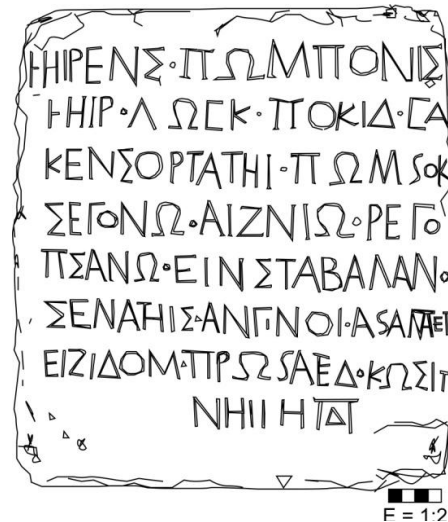 ͰΗΙΡΕΝΣ·ΠΩΜΠΟΝΙΣ
ͰΗΙΡ·ΛΩϹΚ·ΠΟΚΙΔ·ϹΑ
ΚΕΝΣΟΡΤΑΤΗΙ·ΠΩΜSΟΚ
ΣΕΓΟΝΩ·ΑΙΖΝΙΩ·ΡΕΓΟ
ΠΣΑΝΩ·ΕΙΝΣΤΑΒΑΛΑΝ·
ΣΕΝΑΤΗΙΣ·ΑΝΓΙΝΟΙ·
ΕΙΖΙΔΟΜ·ΠΡΩSΑΕΔ·ΚΩΣΙΤ
E = 1:2